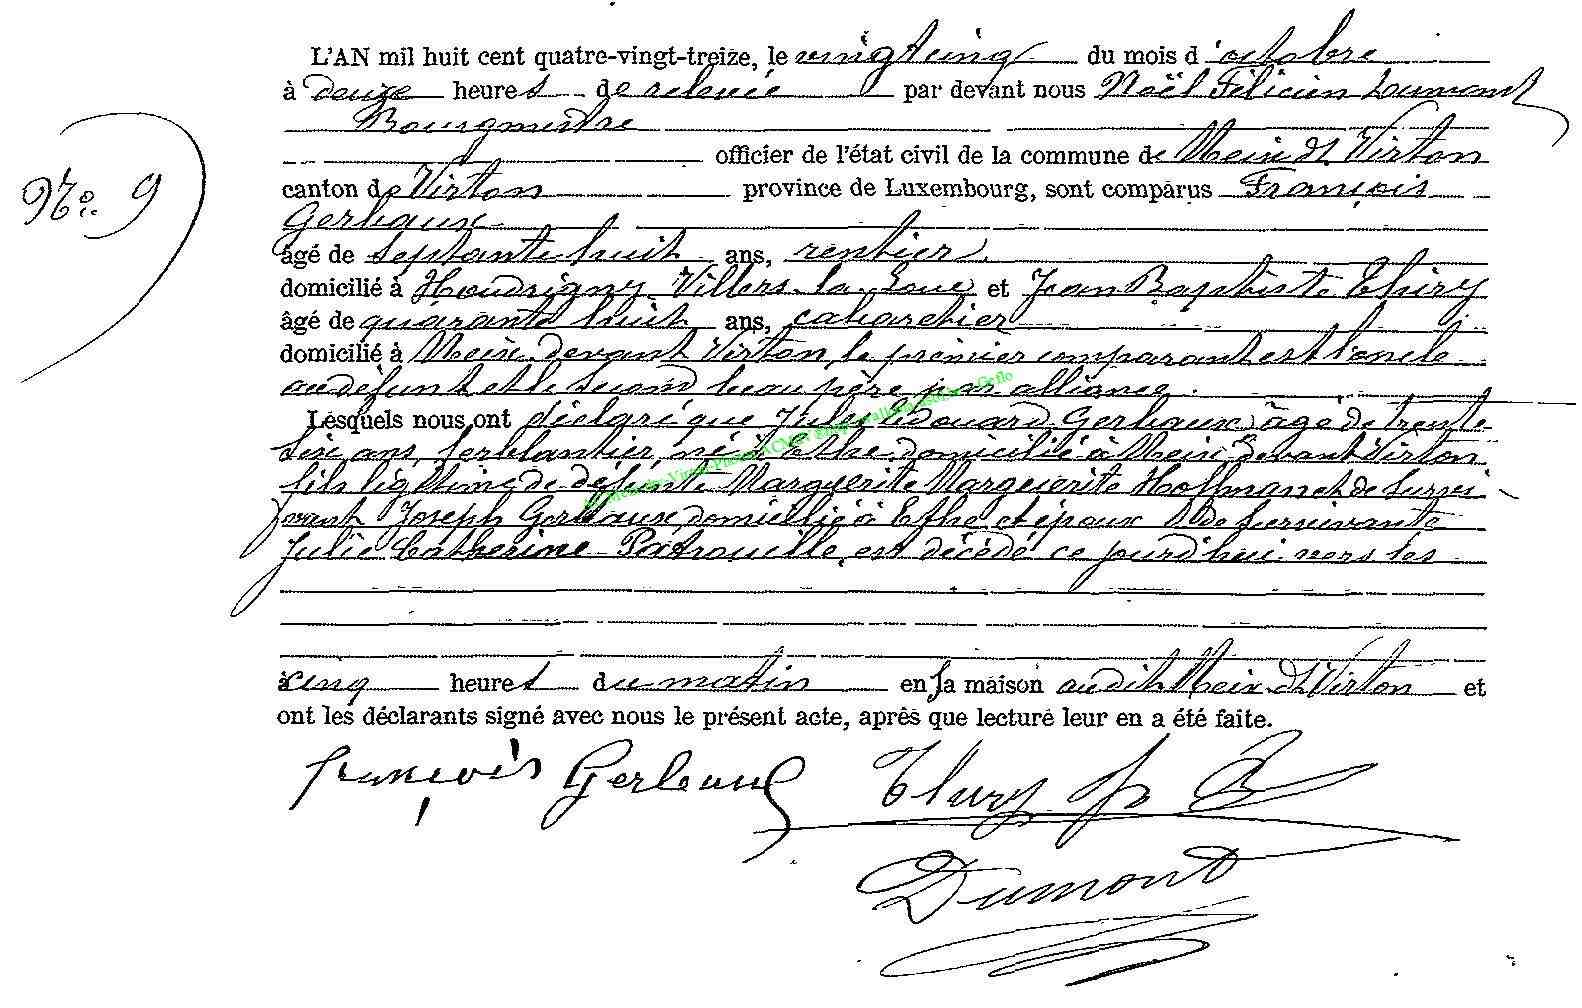 L'AN mil huit cent quatre-vingt-treize, le vingt cinq du mois d'octobre
à deuze heures de relevée par devant nous Noël Félicien Dumont
Bourgmestre
officier de l'état civil de la commune de Meix dt Virton
No. 9
canton de Virton province de Luxembourg, sont comparus François
Gerbaux
âgé de septante huit ans, rentier
domicilié à Houdrigny Villers-la-Loue et Jean Baptiste Thiry
âgé de quarante huit ans, cabaretier
domicilié à Meix devant Virton, le premier comparant est l'oncle
au défunt et le second beau père par alliance.
Lesquels nous ont déclaré que Jules Edouard Gerbaux, âgé de trente
six ans, ferblantier, né à Ethe domicilié à Meix devant Virton
fils légitime de défunte Marguerite Marguerite Hofman et de survi-
vant Joseph Gerbaux domicilié à Ethe et époux de survivante
Julie Catherine Patrouille, est décédé ce jourd'hui vers les
à cinq heures du matin en sa maison audit Meix dt Virton et
ont les déclarants signé avec nous le présent acte, après que lecture leur en a été faite.
françois Gerbaux Thiry JB
Dumont